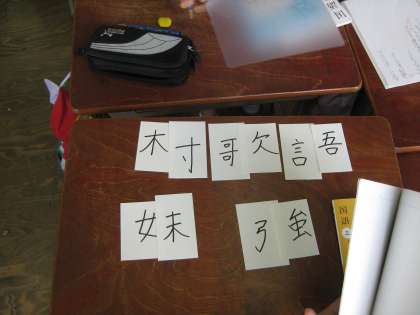 木寸哥欠言吾
女未弓虽
国語